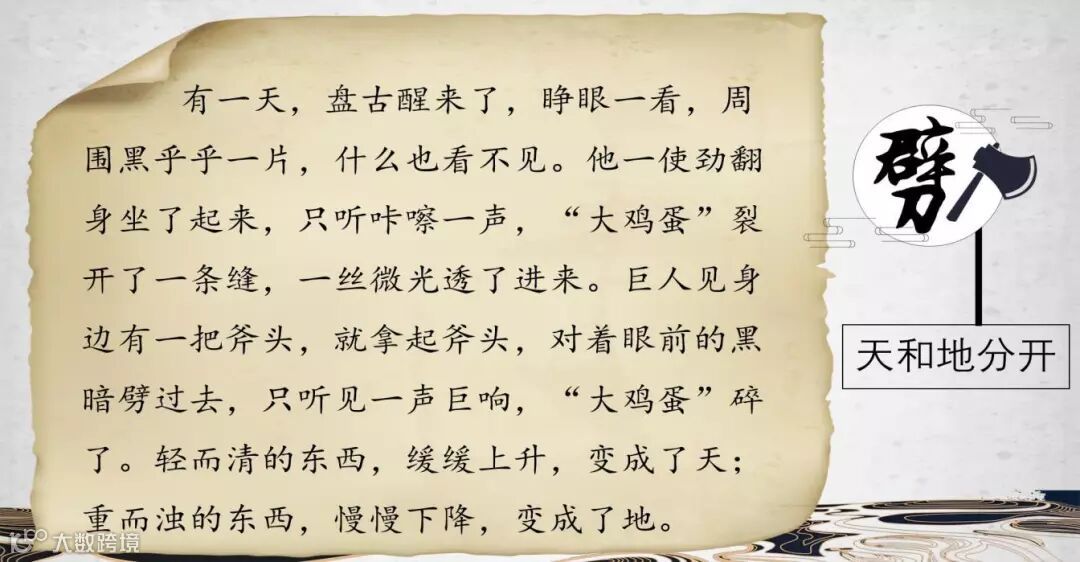 有一天，盘古醒来了，睁眼一看，周
围黑乎乎一片，什么也看不见。他一使劲翻
身坐了起来，只听咔嚓一声，“大鸡蛋”裂
开了一条缝，一丝微光透了进来。巨人见身
边有一把斧头，就拿起斧头，对着眼前的黑
暗劈过去，只听见一声巨响，“大鸡蛋”碎
了。轻而清的东西，缓缓上升，变成了天；
重而浊的东西，慢慢下降，变成了地。
劈
天和地分开
大数跨境